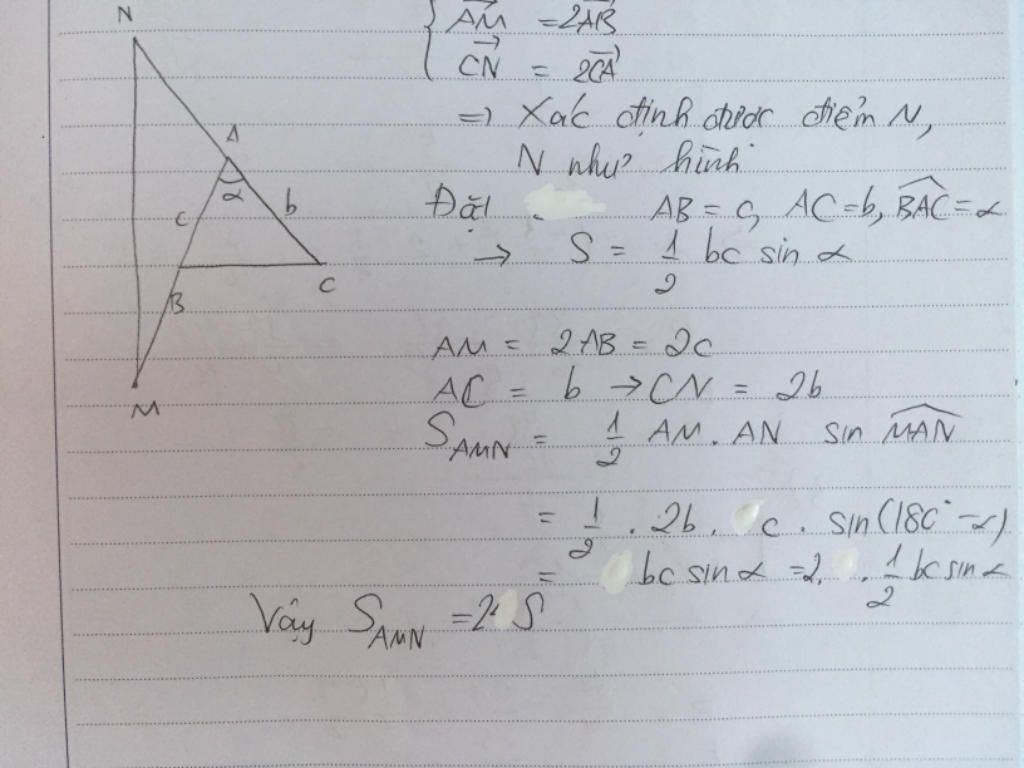 N
A
α
c
b
B
C
M
{ AM⃗ = 2AB⃗
CN⃗ = 2CA⃗
=> Xác định được điểm N,
N như hình
Đặt AB = c, AC = b, B̂AC = α
→ S = 1/2 bc sin α
AM = 2AB = 2c
AC = b → CN = 2b
S_AMN = 1/2 AM. AN sin M̂AN
= 1/2 . 2b. c. sin(180° - α)
= bc sin α = 2. . 1/2 bc sin α
Vậy S_AMN = 2 S